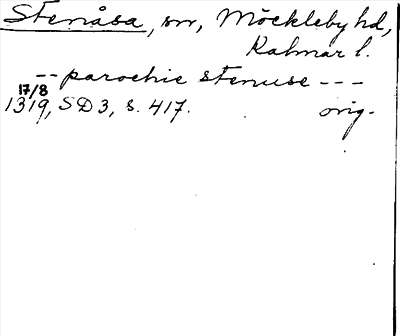 Stenåsa, sn, Möckleby hd,
Kalmar l.
-- parochie stenuse ---
17/8
1319, SD 3, s. 417. orig.